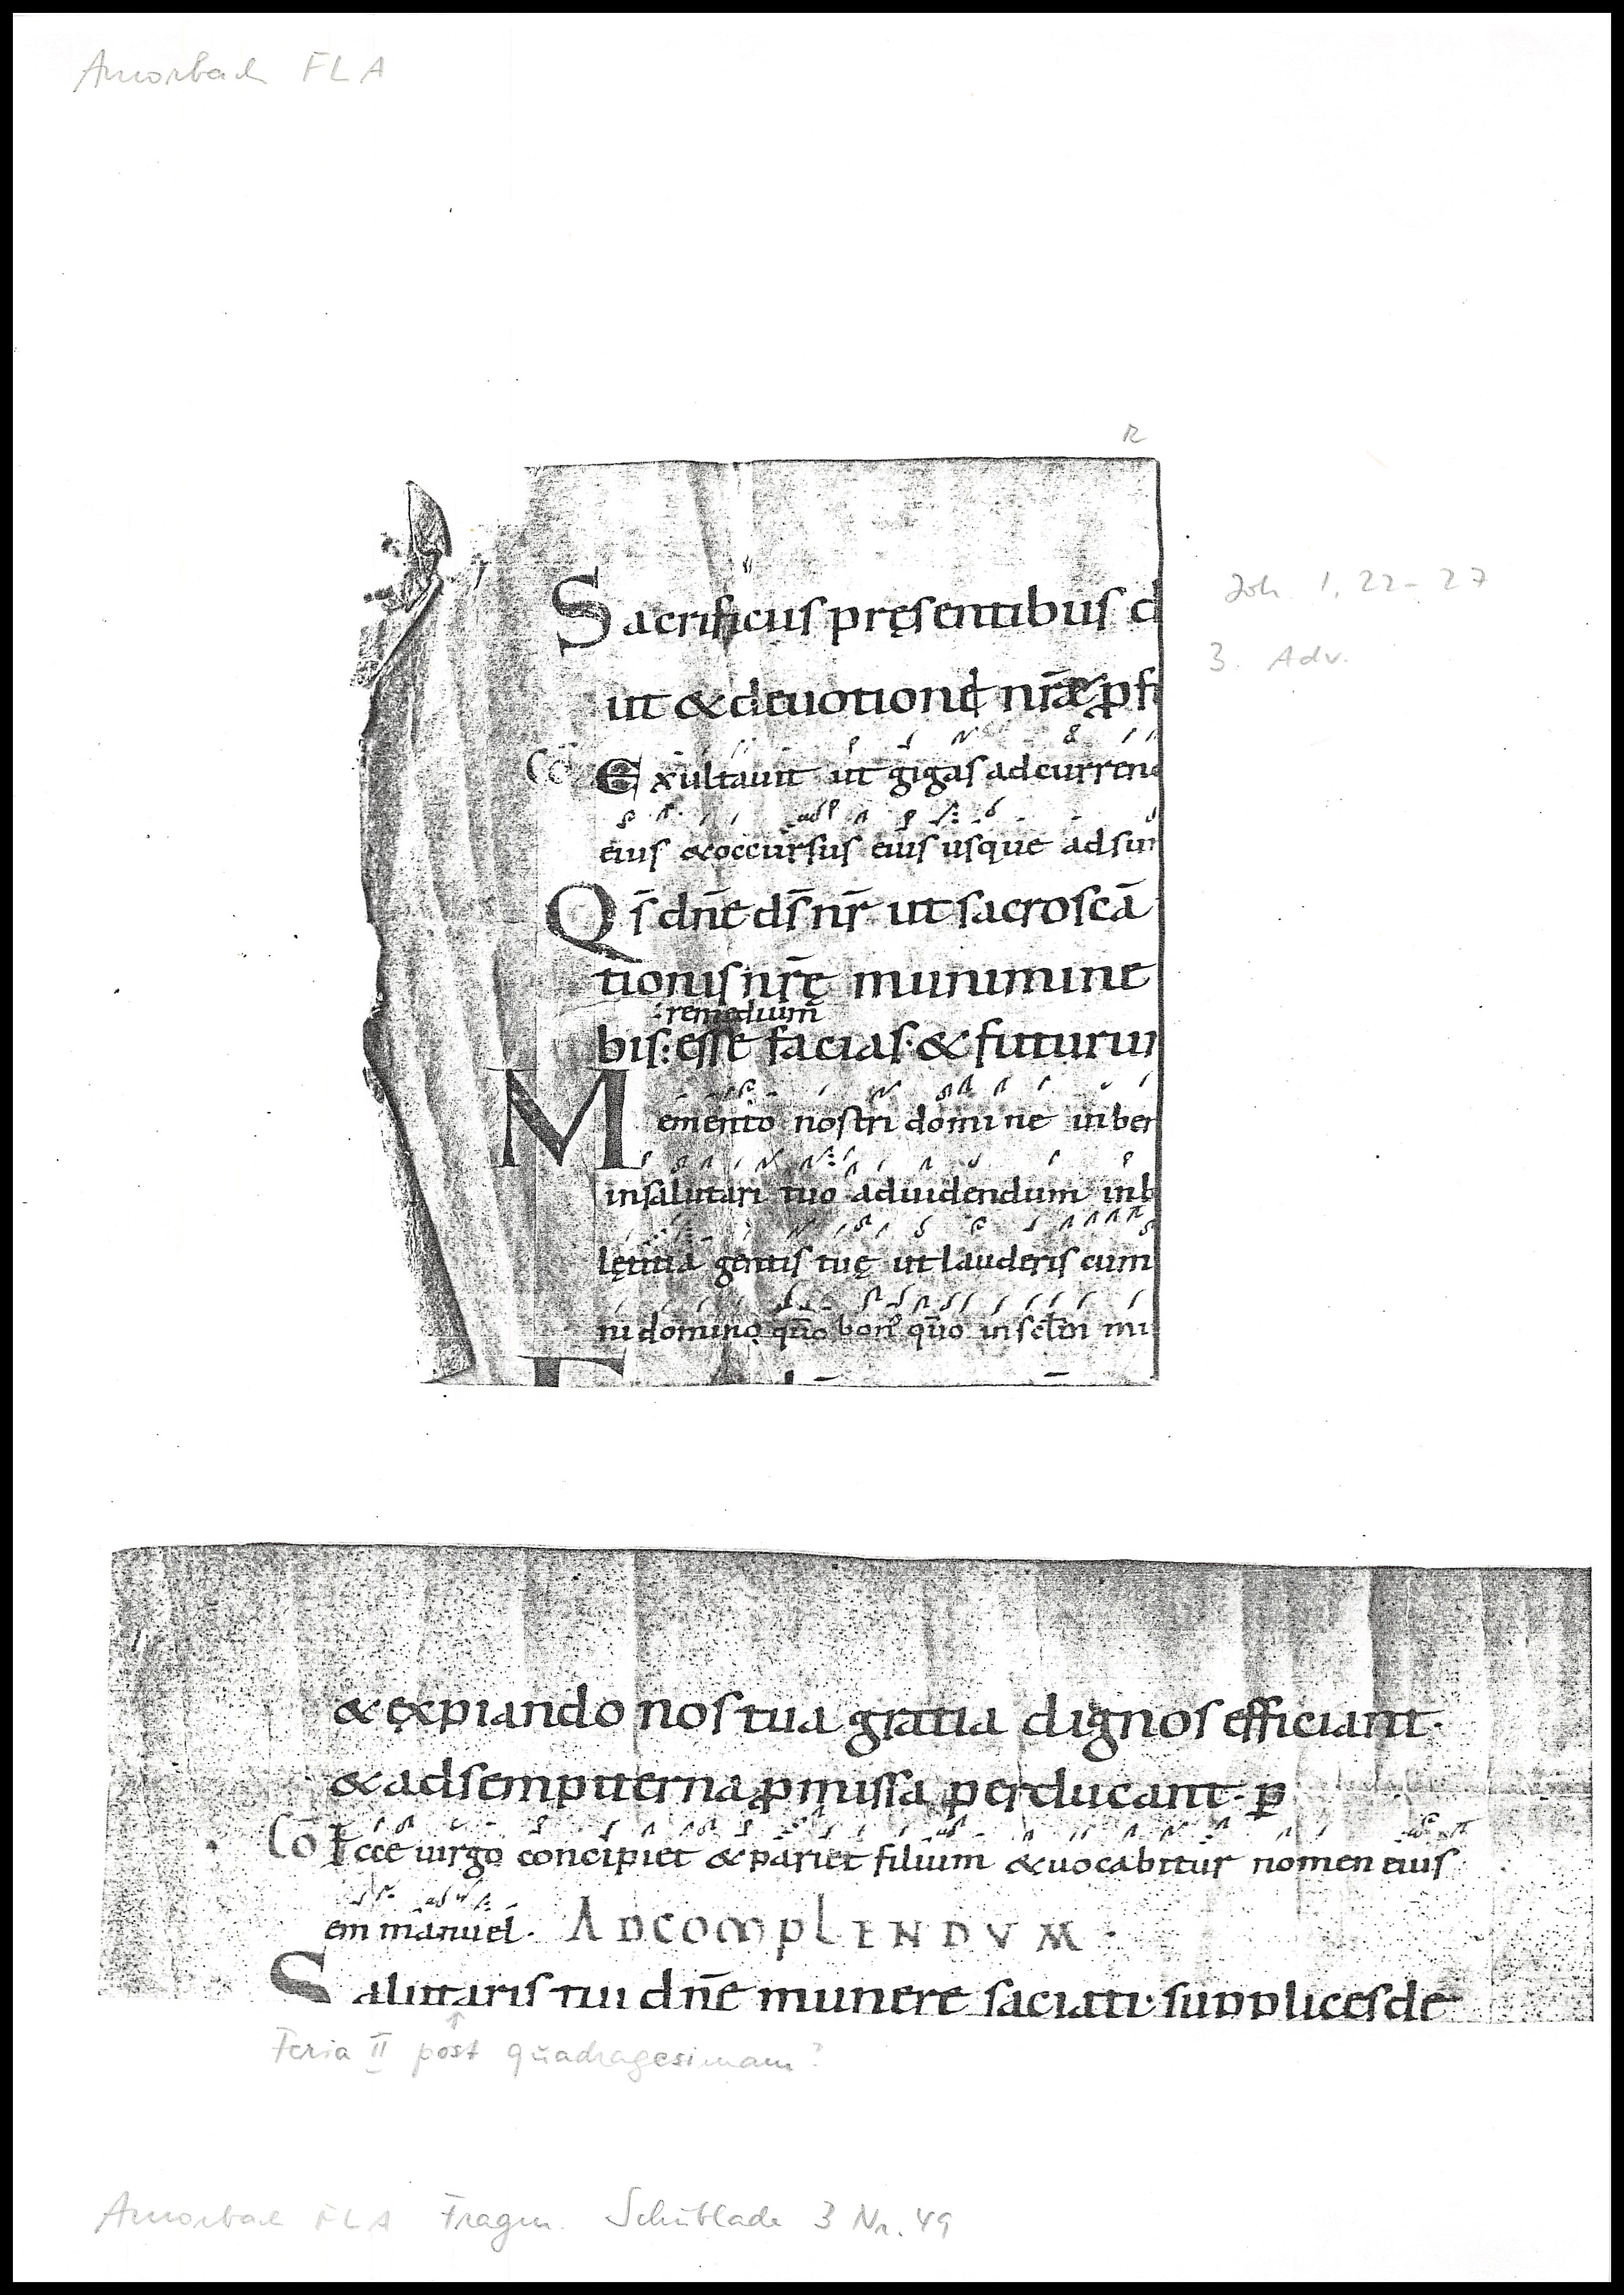 Amorbach FLA
R
Sacrificiis pręsentibus d
Joh. 1, 22-27
3. Adv.
ut & deuotioni nr̄æ ꝓfi
Cō Exultauit ut gigas ad curren
eius & occursus eius usque ad sum
Qs̄ dn̄e ds̄ nr̄ ut sacroscā
tionis nr̄ę munimine
remedium
bis: esse facias· & futurum
Memento nostri domine in ben
in salutari tuo ad uidendum in b
lętitia gentis tuę ut lauderis cum
ni domino qūo bonꝰ qūo in sclm̄ mi
& expiando nos tua gratia dignos efficiant·
& ad sempiterna ꝓmissa perducant· ꝑ
Cō Ecce uirgo concipiet & pariet filium & uocabitur nomen eius
emmanuel· ADCOMPLENDVM·
Salutaris tui dn̄e munere saciati· supplices de
Feria II post quadragesimam?
Amorbach FLA Fragm. Schublade 3 Nr. 49